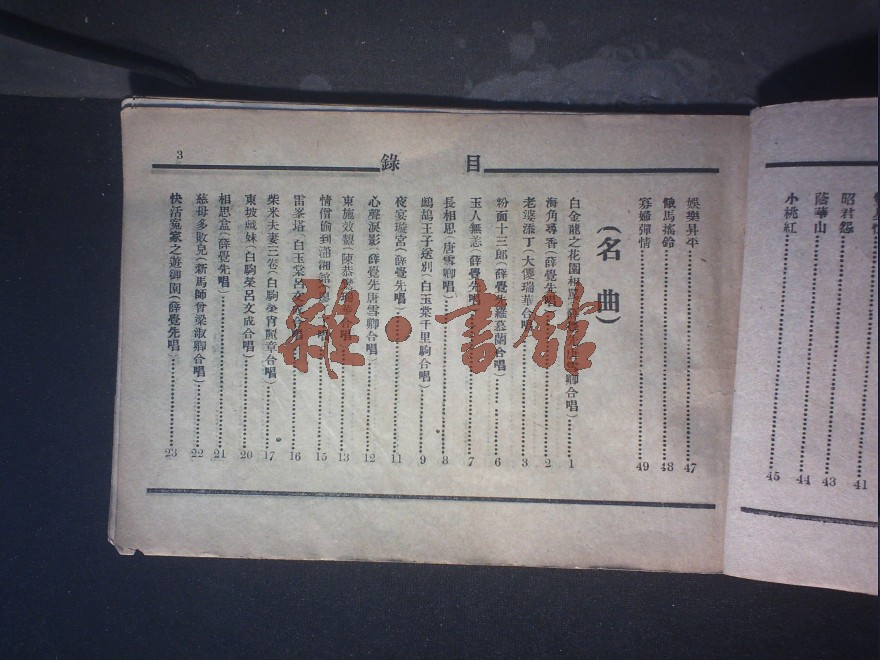 昭君怨 41
蔭華山 43
44
小桃紅 45
目錄
3
娛樂昇平 47
餓馬搖鈴 48
寡婦彈情 49
(名曲)
白金龍之花園相罵 合唱) 1
海角尋香(薛覺先唱) 2
老婆添丁(大傻瑞華合唱) 3
粉面十三郎(薛覺先羅慕蘭合唱) 6
玉人無恙(薛覺先唱) 7
長相思(唐雪卿唱) 8
鷓鴣王子送別(白玉棠千里駒合唱) 9
夜宴璇宮(薛覺先唱) 11
心聲淚影(薛覺先唐雪卿合唱) 12
東施效顰(陳恭 合唱) 13
情僧偷到瀟湘館 唱) 15
雷峯塔(白玉棠呂文成合唱) 16
柴米夫妻三卷(白駒榮肖麗章合唱) 17
東坡戲妹(白駒榮呂文成合唱) 20
相思盒(薛覺先唱) 21
慈母多敗兒(新馬師曾梁淑卿合唱) 22
快活冤家之遊御園(薛覺先唱) 23
雜·書館